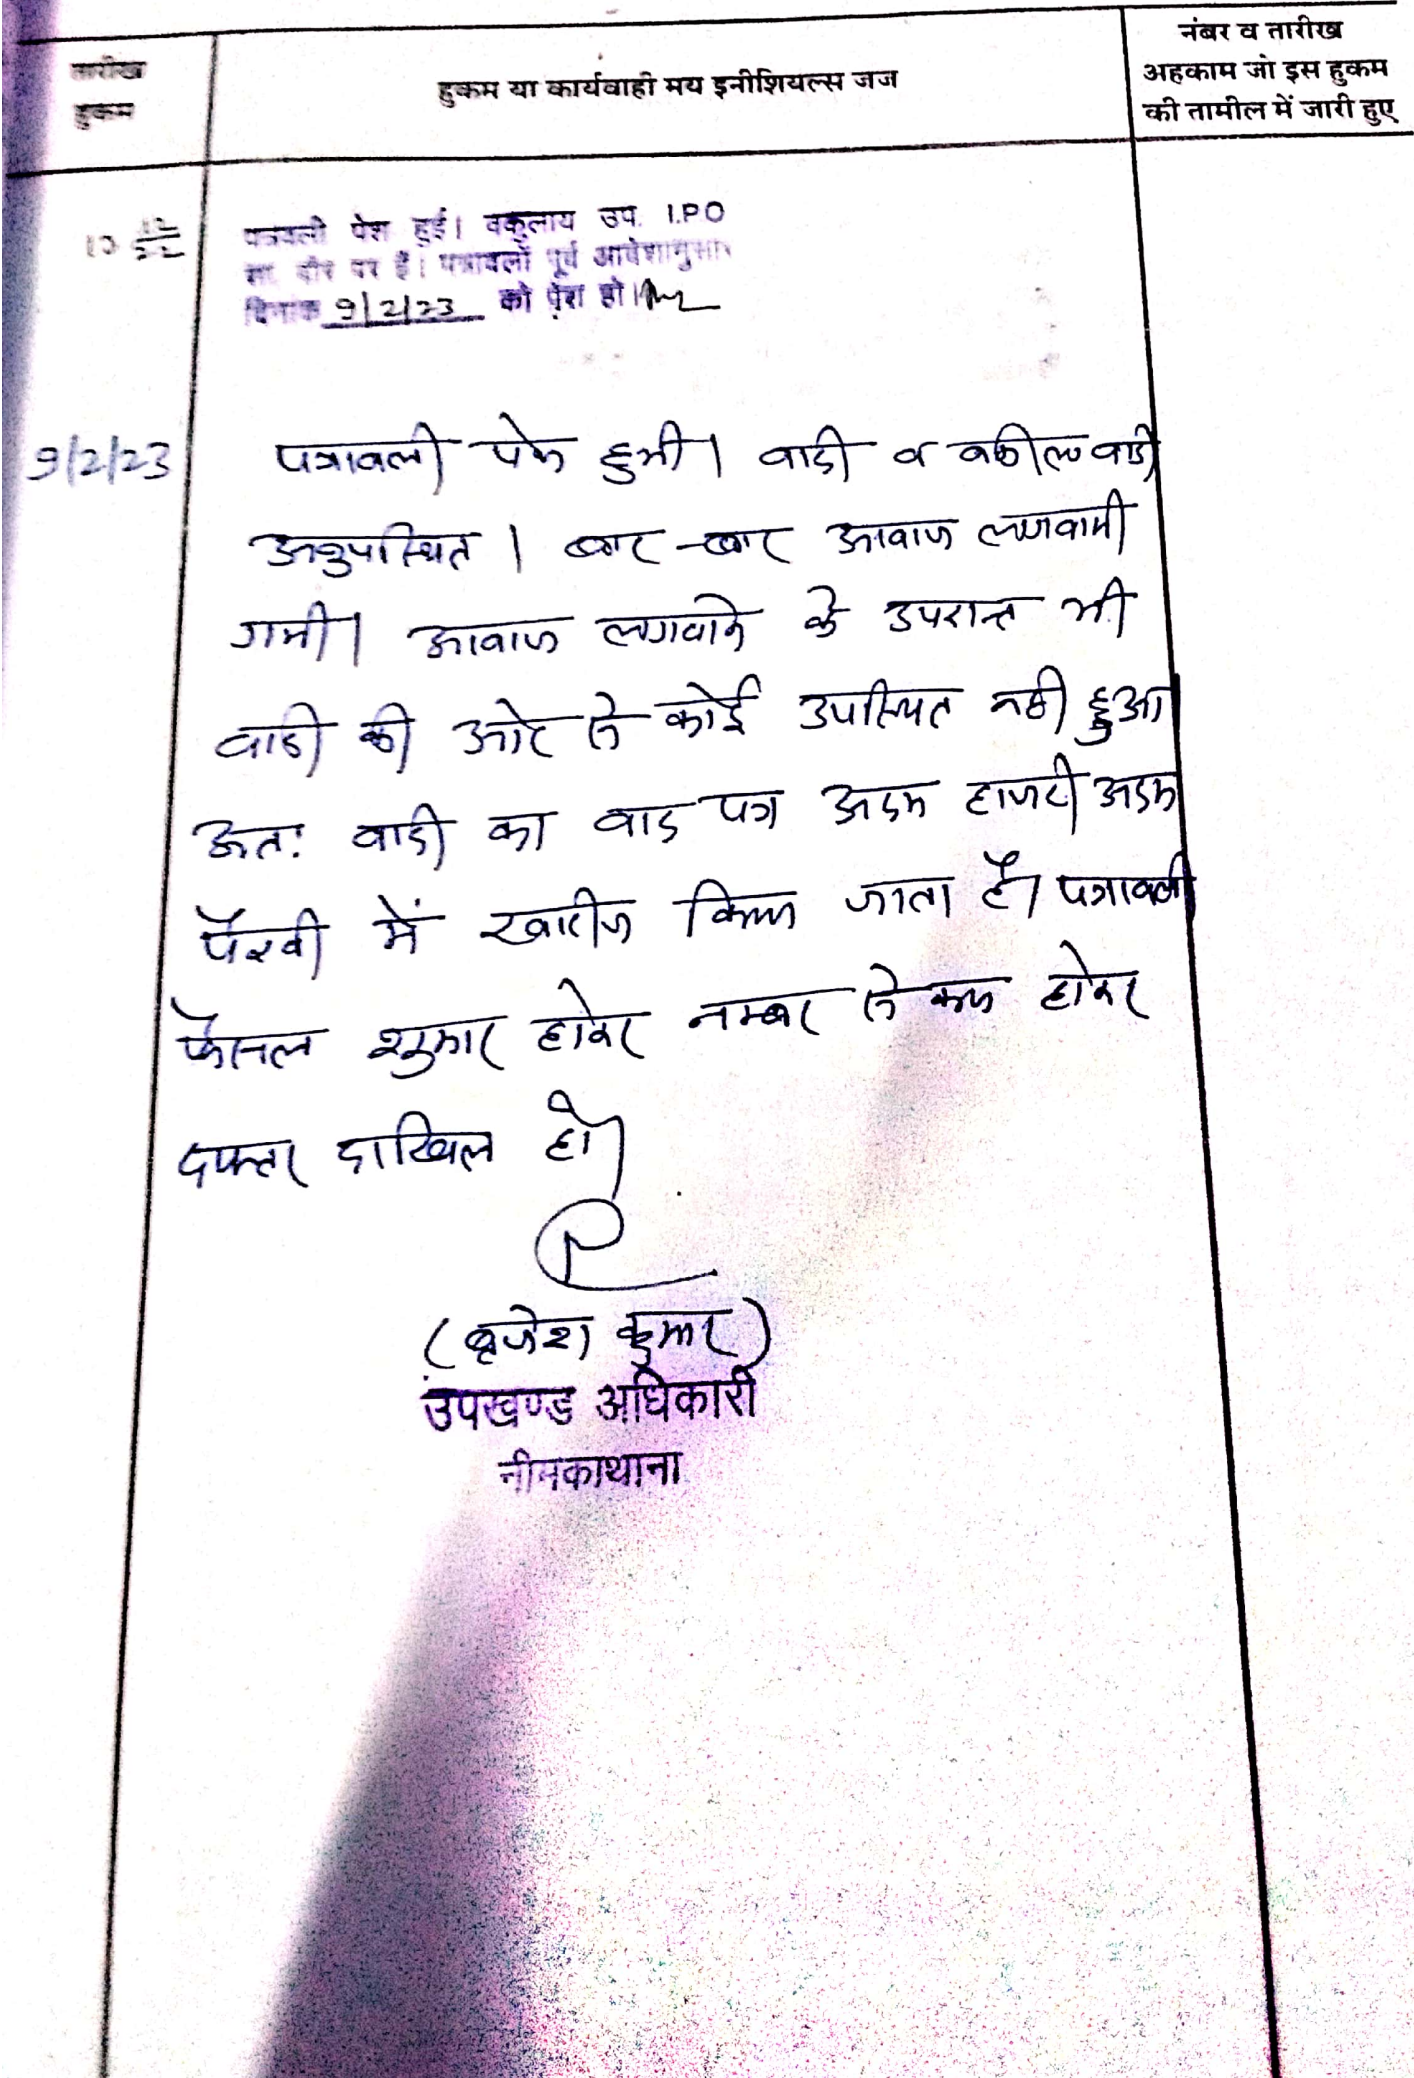 तारीख
हुकम
हुकम या कार्यवाही मय इनीशियल्स जज
नंबर व तारीख
अहकाम जो इस हुकम
की तामील में जारी हुए
पत्रावली पेश हुई। वकुलाय उप. I.P.O
सा. दौरे पर है। पत्रावली पूर्व आदेशानुसार
दिनांक 9/2/23 को पेश हो।
9/2/23
पत्रावली पेश हुयी। वादी व वकील वादी
अनुपस्थित। बार-बार आवाज लगवायी
गयी। आवाज लगवाने के उपरान्त भी
वादी की ओर से कोई उपस्थित नही हुआ
अतः वादी का वाद पत्र अदम हाजरी अदम
पैरवी में खारीज किया जाता है। पत्रावली
फैसल शुमार होकर नम्बर से कम होकर
दफ्तर दाखिल हो।
(बृजेश कुमार)
उपखण्ड अधिकारी
नीमकाथाना